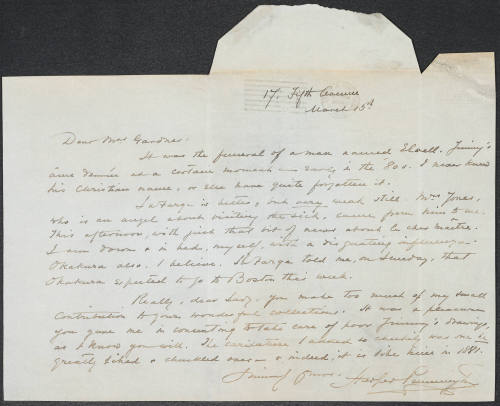 17, Fifth Avenue
March 15th
Dear Mrs Gardner.
It was the funeral of a man named Elwell. Jimmy's
âme damnée at a certain moment — early in the 80s. I never knew
his Christian name, or else have quite forgotten it.
LaFarge is better, but very weak still. Mrs Jones,
who is an angel about visiting the sick, came from him to me.
This afternoon, with just that bit of news about le cher maître.
I am down & in bed, myself, with a disgusting influenza —
Okakura also, I believe. LaFarge told me, on Sunday, that
Okakura expected to go to Boston this week.
Really, dear Lady, you make too much of my small
contribution to your wonderful collections. It was a pleasure
you gave me in consenting to take care of poor Jimmy's drawings,
as I know you will. The caricature I added is exactly was
greatly liked & chuckled over — & indeed, it is like him in 1881.
Sincerely yours, Harper Pennington